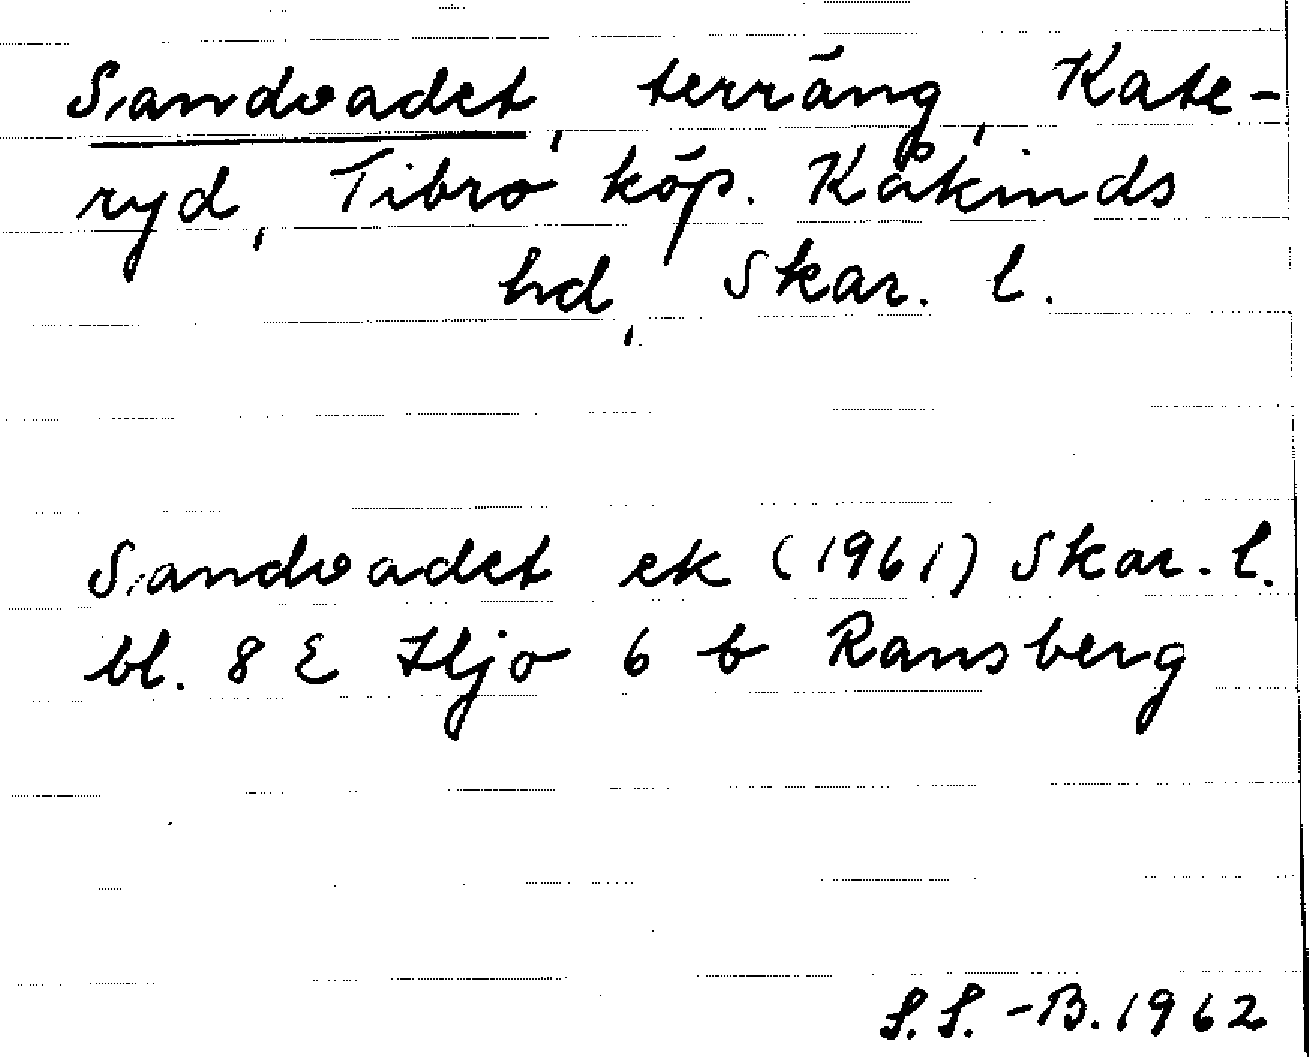 Sandvadet, terräng, Kate-
ryd, Tibro köp. Kåkinds
hd, Skar. l.
Sandvadet ek (1961) Skar. l.
bl. 8 E Hjo 6 b Ransberg
S.S.-B. 1962